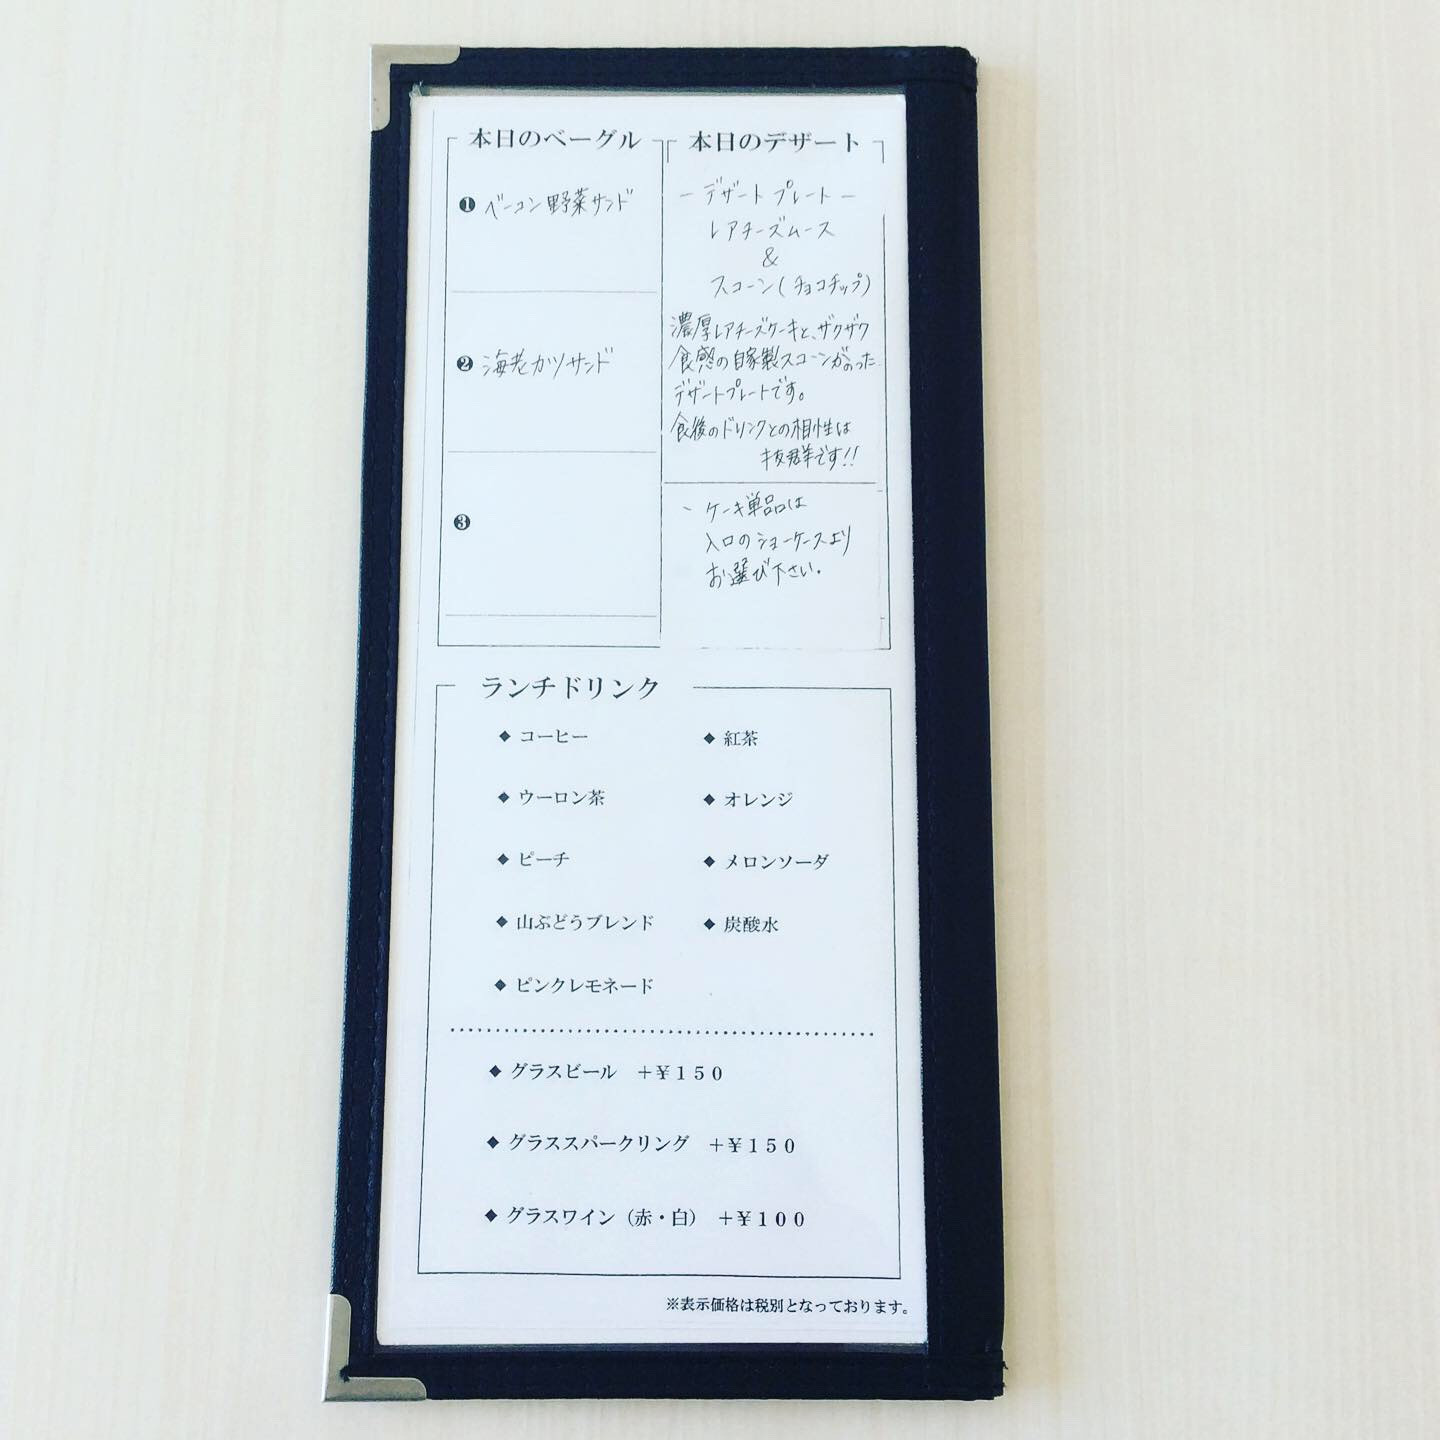 本日のベーグル
❶ ベーコン野菜サンド
❷ 海老カツサンド
❸
本日のデザート
ー デザートプレート ー
レアチーズムース
&
スコーン(チョコチップ)
濃厚レアチーズケーキと、ザクザク
食感の自家製スコーンがのった
デザートプレートです。
食後のドリンクとの相性は
抜群です!!
- ケーキ単品は
入口のショーケースより
お選び下さい。
ランチドリンク
◆ コーヒー
◆ 紅茶
◆ ウーロン茶
◆ オレンジ
◆ ピーチ
◆ メロンソーダ
◆ 山ぶどうブレンド
◆ 炭酸水
◆ ピンクレモネード
◆ グラスビール ＋￥１５０
◆ グラススパークリング ＋￥１５０
◆ グラスワイン（赤・白） ＋￥１００
※表示価格は税別となっております。